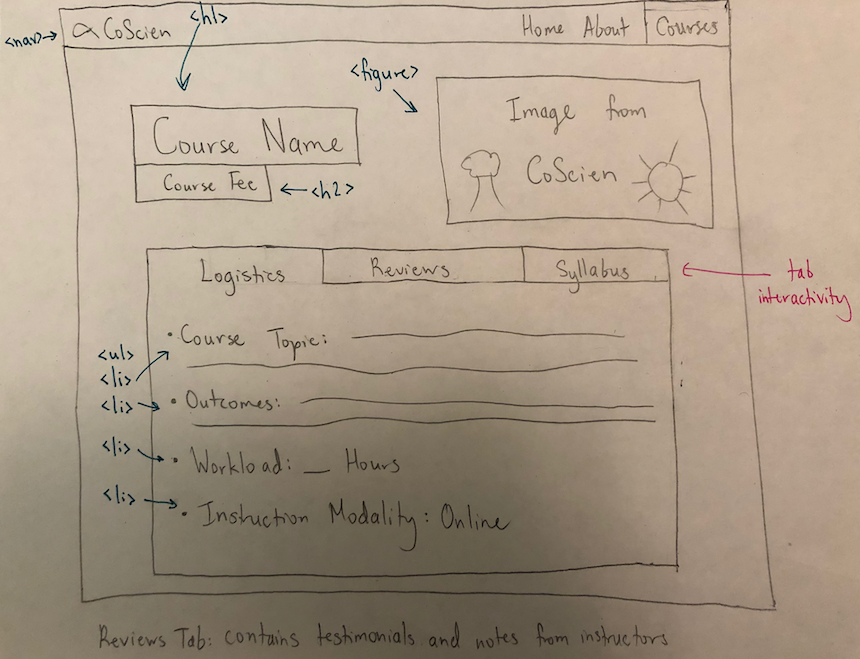 <nav> CoScien <h1> Home About Courses
<figure>
Image from
CoScien
Course Name
Course Fee <h2>
Logistics Reviews Syllabus
tab
interactivity
Course Topic:
<ul>
<li>
<li> Outcomes:
<li> Workload: __ Hours
<li> Instruction Modality: Online
Reviews Tab: contains testimonials and notes from instructors